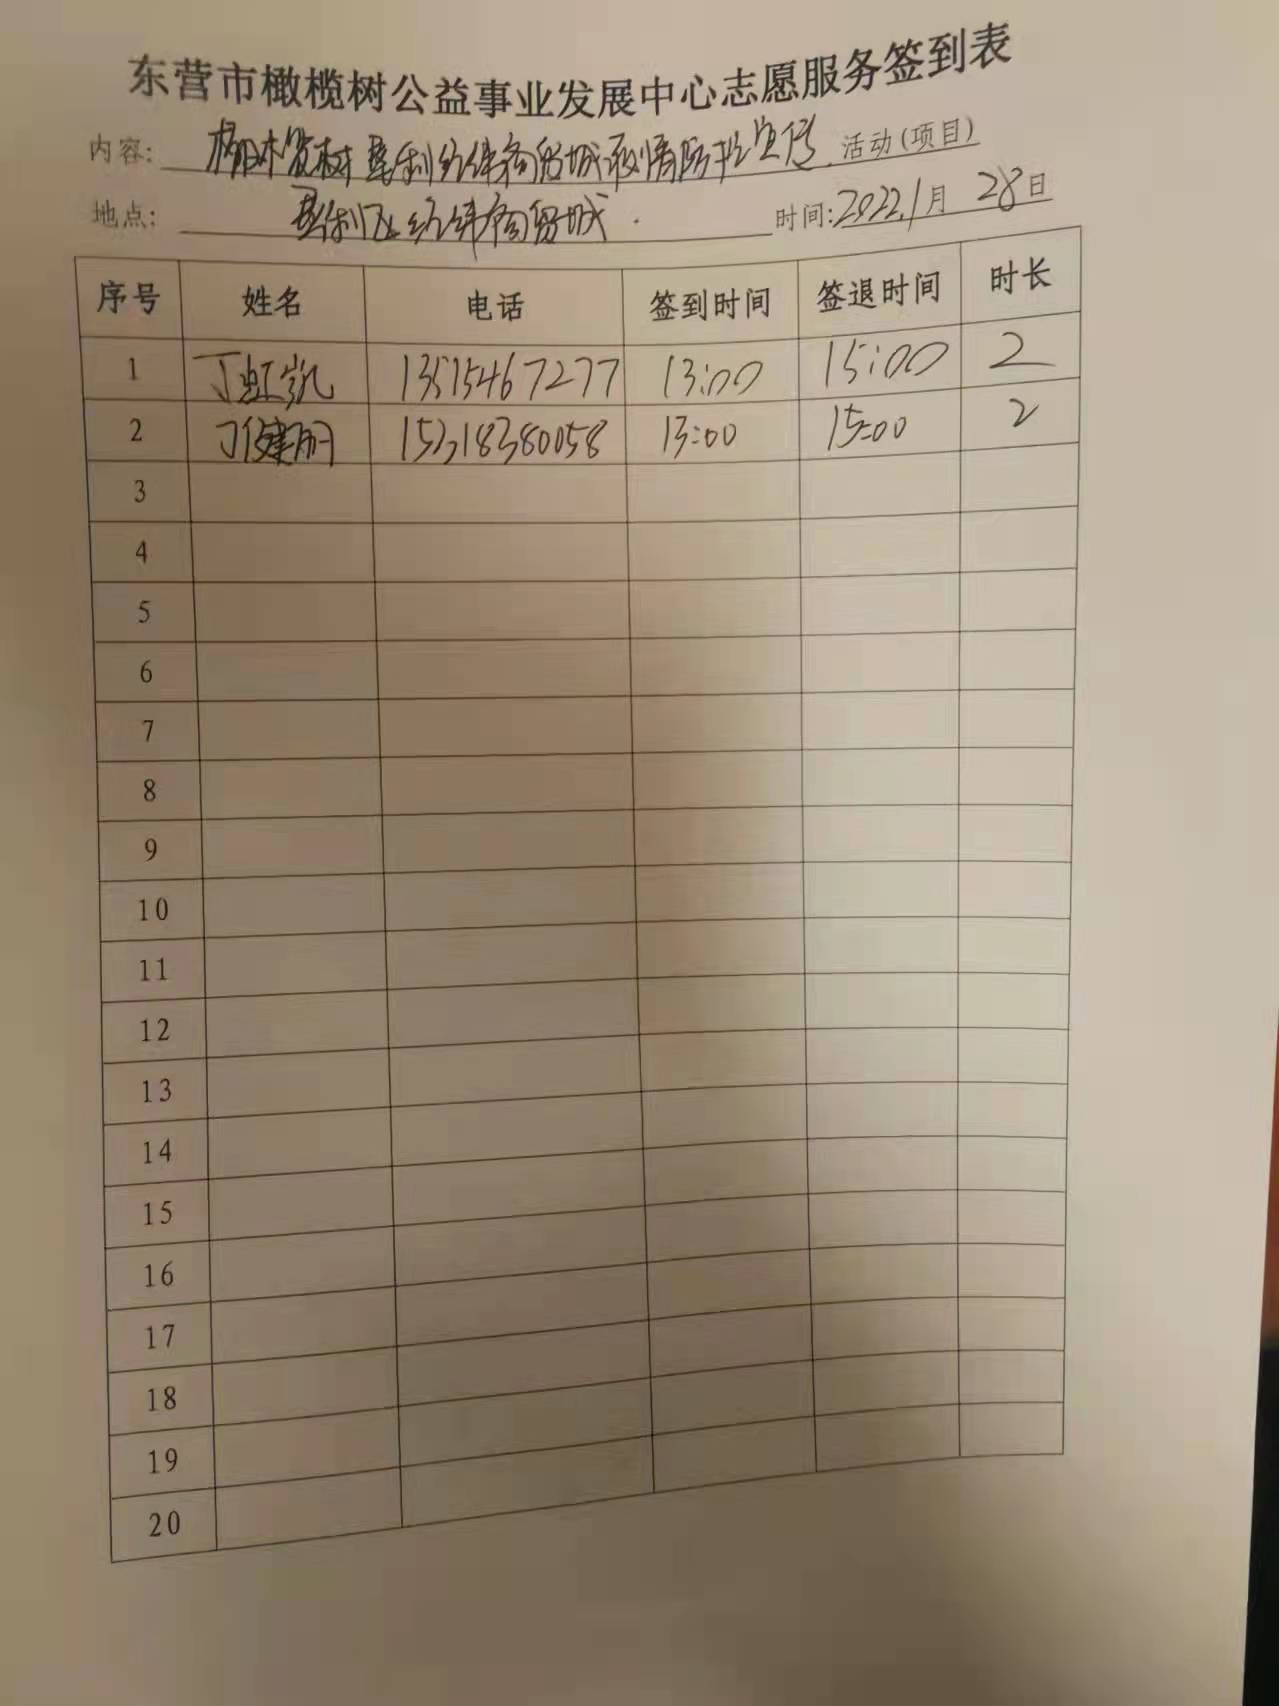 东营市橄榄树公益事业发展中心志愿服务签到表
内容: 橄榄树垦利经纬商贸城疫情防控宣传 活动(项目)
地点: 垦利区经纬商贸城. 时间:2022.1月 28日
序号 姓名 电话 签到时间 签退时间 时长
1 丁虹凯 13515467277 13:00 15:00 2
2 丁健丽 13:00 15:00 2
3
4
5
6
7
8
9
10
11
12
13
14
15
16
17
18
19
20